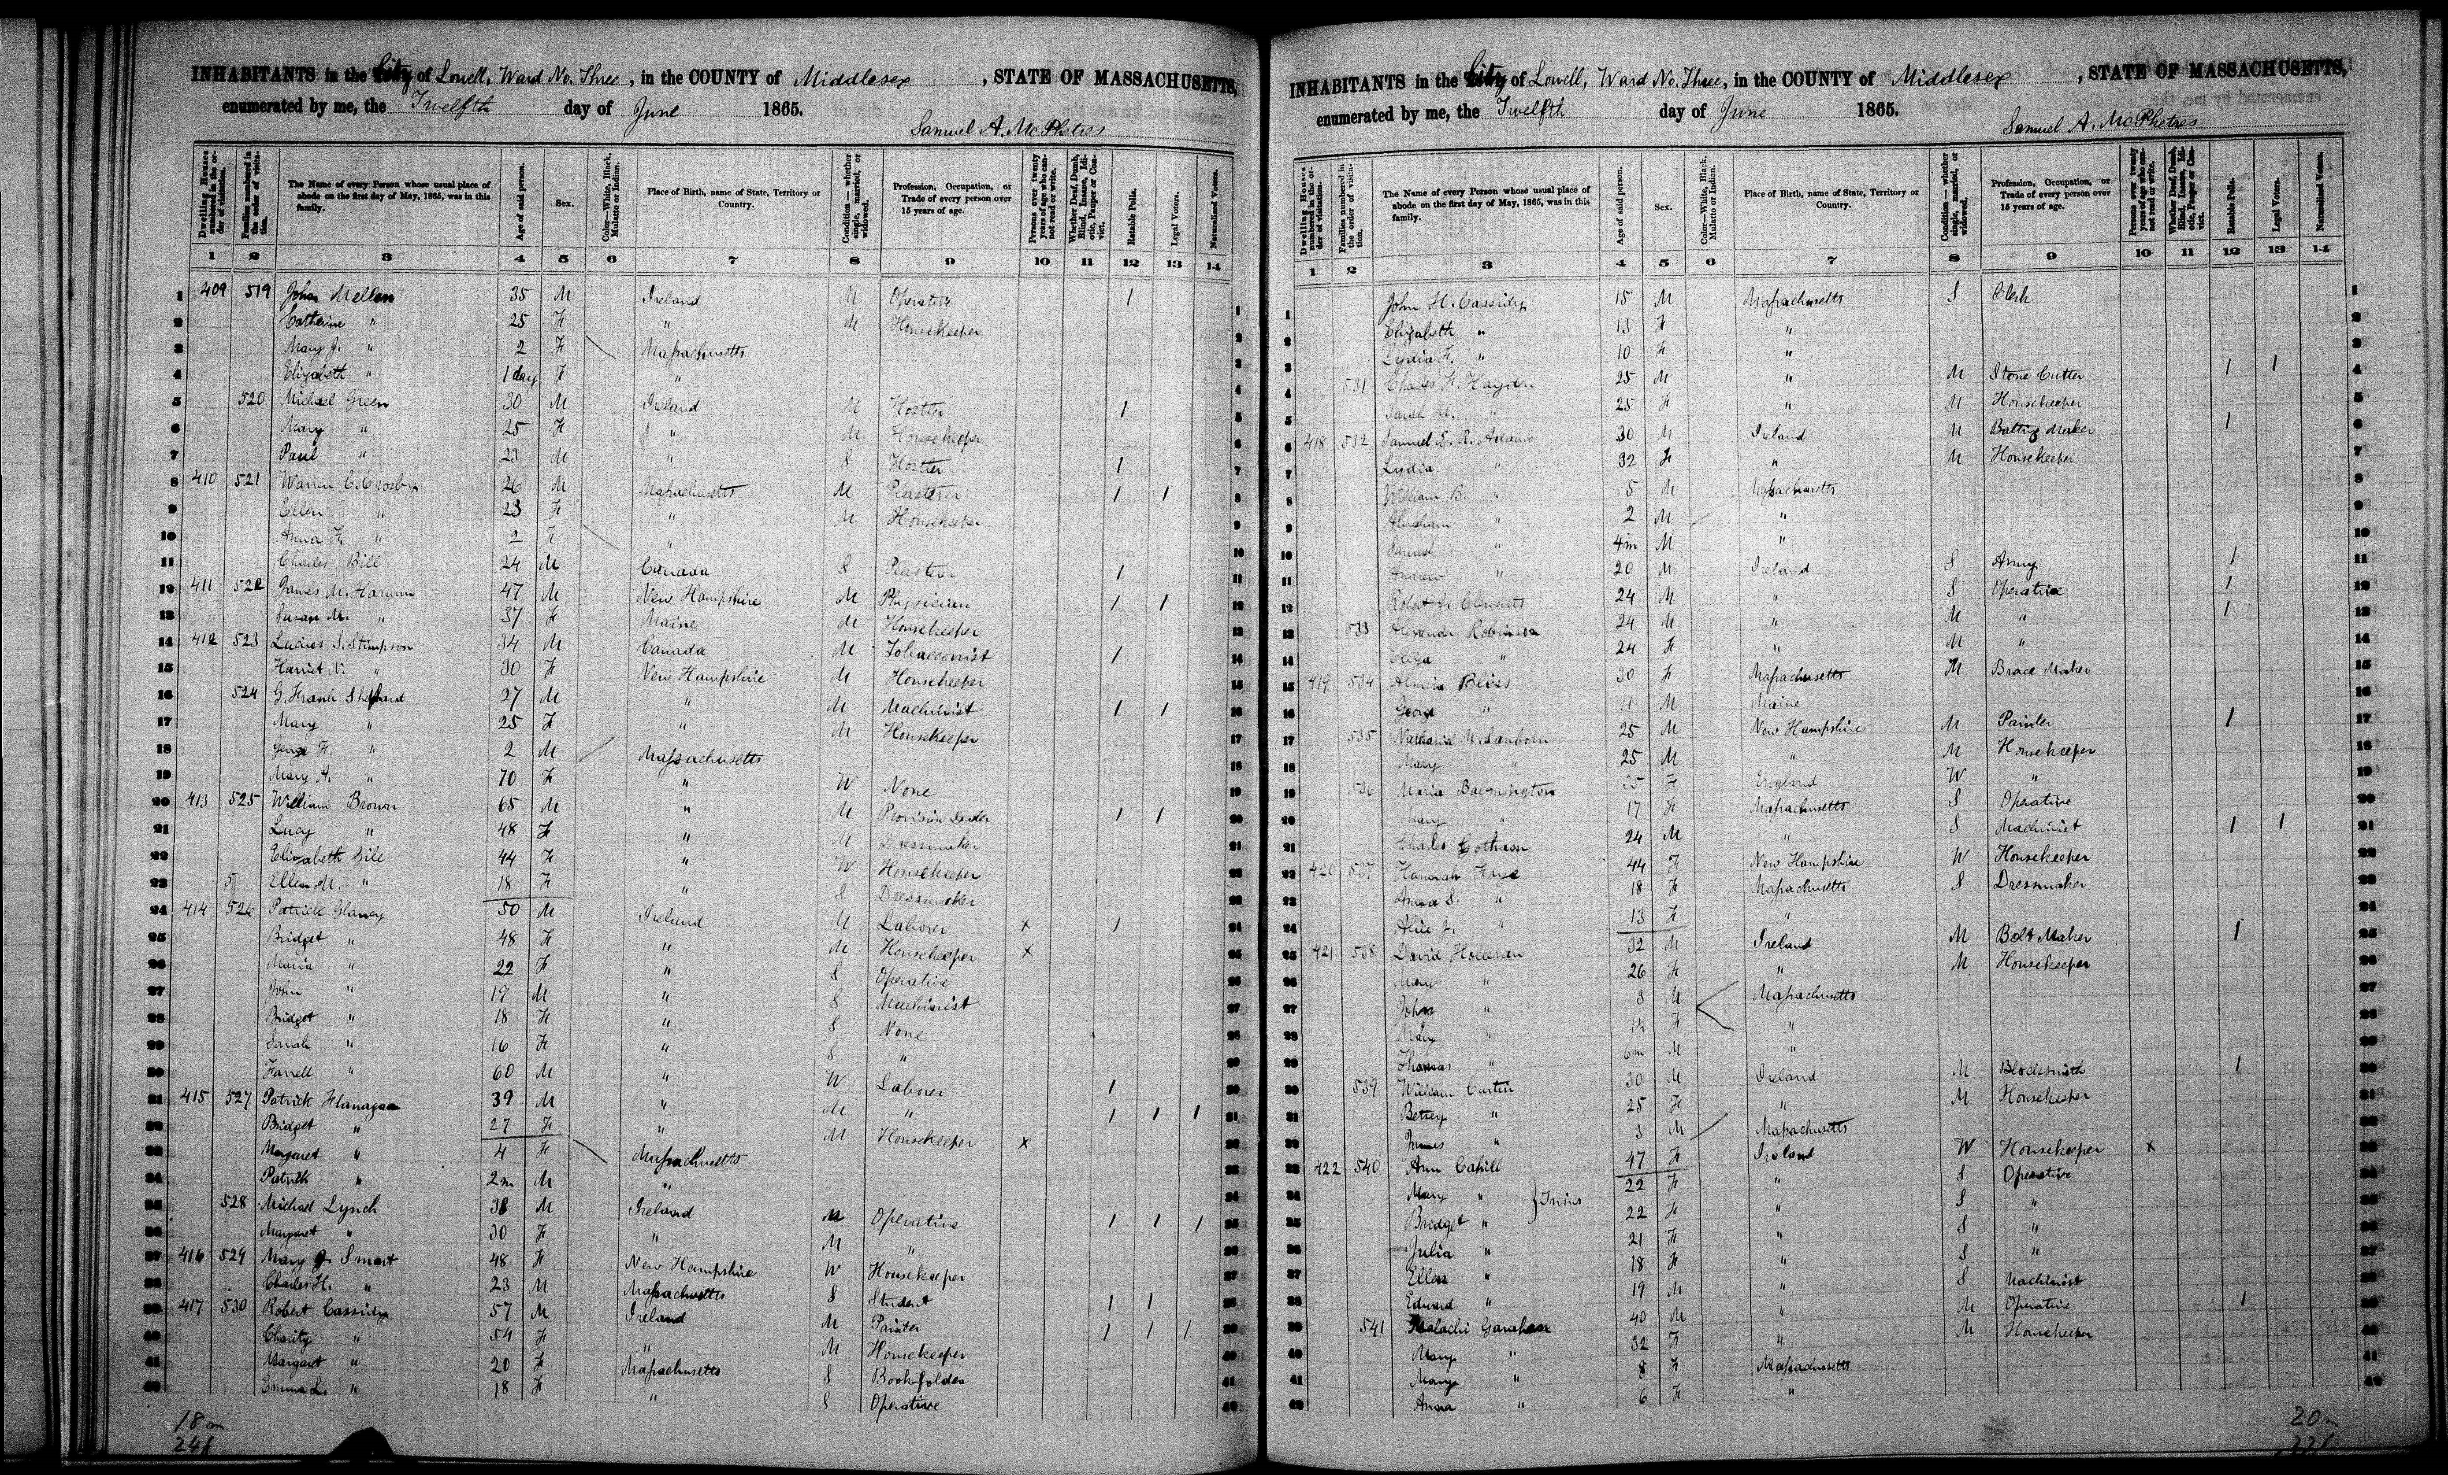 INHABITANTS in the City of Lowell, Ward No. Three, in the COUNTY of Middlesex, STATE OF MASSACHUSETTS,
enumerated by me, the Twelfth day of June 1865.
Samuel A. McPhetres
Dwelling Houses numbered in the order of visitation.
Families numbered in the order of visitation.
The Name of every Person whose usual place of abode on the first day of May, 1865, was in this family.
Age of said person.
Sex.
Color—White, Black, Mulatto or Indian.
Place of Birth, name of State, Territory or Country.
Condition—whether single, married, or widowed.
Profession, Occupation, or Trade of every person over 15 years of age.
Persons over twenty years of age who cannot read or write.
Whether Deaf, Dumb, Blind, Insane, Idiotic, Pauper or Convict.
Ratable Polls.
Legal Voters.
Naturalized Voters.
1 2 3 4 5 6 7 8 9 10 11 12 13 14
1 409 519 John Mellen 35 M Ireland M Operative 1
2 Catherine " 25 F " M Housekeeper
3 Mary J. " 2 F Massachusetts
4 Elizabeth " 1 day F "
5 520 Michael Green 30 M Ireland M Hostler 1
6 Mary " 25 F " M Housekeeper
7 Paul " 23 M " S Hostler 1
8 410 521 Warren C. Crosby 26 M Massachusetts M Plasterer 1 1
9 Ellen " 23 F " M Housekeeper
10 Anna F. " 2 F "
11 Charles Bill 24 M Canada S Plasterer 1
12 411 522 James M. 47 M New Hampshire M Physician 1 1
13 Susan M. " 37 F Maine M Housekeeper
14 412 523 Lucius S. Stimpson 34 M Canada M Tobacconist 1
15 Harriet N. " 30 F New Hampshire M Housekeeper
16 524 G. Frank Shepard 27 M " M Machinist 1 1
17 Mary " 25 F M Housekeeper
18 George F. " 2 M Massachusetts
19 Mary A. " 70 F " W None
20 413 525 William Brown 65 M " M Provision Dealer 1 1
21 Lucy " 48 F " M Dressmaker
22 Elizabeth 44 F " W Housekeeper
23 Ellen M. " 18 F " S Dressmaker
24 414 526 Patrick 50 M Ireland M Laborer x 1
25 Bridget " 48 F " M Housekeeper x
26 Maria " 22 F " S Operative
27 John " 19 M " S Machinist
28 Bridget " 18 F " S None
29 Sarah " 16 F " S "
30 Farrell " 60 M " W Laborer 1
31 415 527 Patrick Flanagan 39 M " M " 1 1 1
32 Bridget " 27 F " M Housekeeper x
33 Margaret " 4 F Massachusetts
34 Patrick " 2m M "
35 528 Michael Lynch 38 M Ireland M Operative 1 1 1
36 Margaret " 30 F " M "
37 416 529 Mary J. Smart 48 F New Hampshire W Housekeeper
38 Charles H. " 23 M Massachusetts S Student 1 1
39 417 530 Robert Cassidy 57 M Ireland M Painter 1 1 1
40 Charity " 54 F " M Housekeeper
41 Margaret " 20 F Massachusetts S Bookfolder
42 Emma L. " 18 F " S Operative
18m
241
INHABITANTS in the City of Lowell, Ward No. Three, in the COUNTY of Middlesex, STATE OF MASSACHUSETTS,
enumerated by me, the Twelfth day of June 1865.
Samuel A. McPhetres
Dwelling Houses numbered in the order of visitation.
Families numbered in the order of visitation.
The Name of every Person whose usual place of abode on the first day of May, 1865, was in this family.
Age of said person.
Sex.
Color—White, Black, Mulatto or Indian.
Place of Birth, name of State, Territory or Country.
Condition—whether single, married, or widowed.
Profession, Occupation, or Trade of every person over 15 years of age.
Persons over twenty years of age who cannot read or write.
Whether Deaf, Dumb, Blind, Insane, Idiotic, Pauper or Convict.
Ratable Polls.
Legal Voters.
Naturalized Voters.
1 2 3 4 5 6 7 8 9 10 11 12 13 14
1 John H. Cassidy 15 M Massachusetts S Clerk
2 Elizabeth " 13 F "
3 Lydia F. " 10 F "
4 531 Charles F. Hayden 25 M " M Stone Cutter 1 1
5 Sarah " 25 F " M Housekeeper
6 418 532 Samuel S. R. Adams 30 M Ireland M Batting Maker 1
7 Lydia " 32 F " M Housekeeper
8 William B. " 5 M Massachusetts
9 Abraham " 2 M "
10 Samuel " 4m M "
11 Andrew " 20 M Ireland S Army 1
12 Robert 24 M " S Operative 1
13 533 Alexander Robinson 24 M " M " 1
14 Eliza " 24 F " M "
15 419 534 Almira 30 F Massachusetts M Braid Maker
16 George " M Maine
17 535 Nathaniel W. Sanborn 25 M New Hampshire M Painter 1
18 Mary " 25 M " M Housekeeper
19 536 Maria F England W "
20 Mary " 17 F Massachusetts S Operative
21 Charles 24 M " S Machinist 1 1
22 420 537 Hannah 44 F New Hampshire W Housekeeper
23 Anna S. " 18 F Massachusetts S Dressmaker
24 Alice J. " 13 F "
25 421 538 David Holleran 32 M Ireland M Bolt Maker 1
26 Mary " 26 F " M Housekeeper
27 John " 3 M Massachusetts
28 Mary " F "
29 Thomas " 6m M "
30 539 William Curtin 30 M Ireland M Blacksmith 1
31 Betsey " 25 F " M Housekeeper
32 James " 3 M Massachusetts
33 422 540 Ann Cahill 47 F Ireland W Housekeeper x
34 Mary " } Twins 22 F " S Operative
35 Bridget " 22 F " S "
36 Julia " 21 F " S "
37 Ellen " 18 F " S "
38 Edward " 19 M " S Machinist
39 541 Malachi Garahan 40 M " M Operative 1
40 Mary " 32 F " M Housekeeper
41 Mary " 8 F Massachusetts
42 Anna " 6 F "
20m